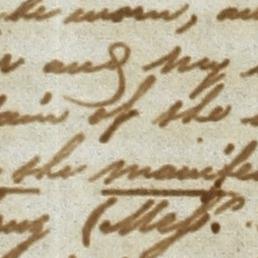 the morn, an
r and my
tain of the
the manife
ing (Mess.